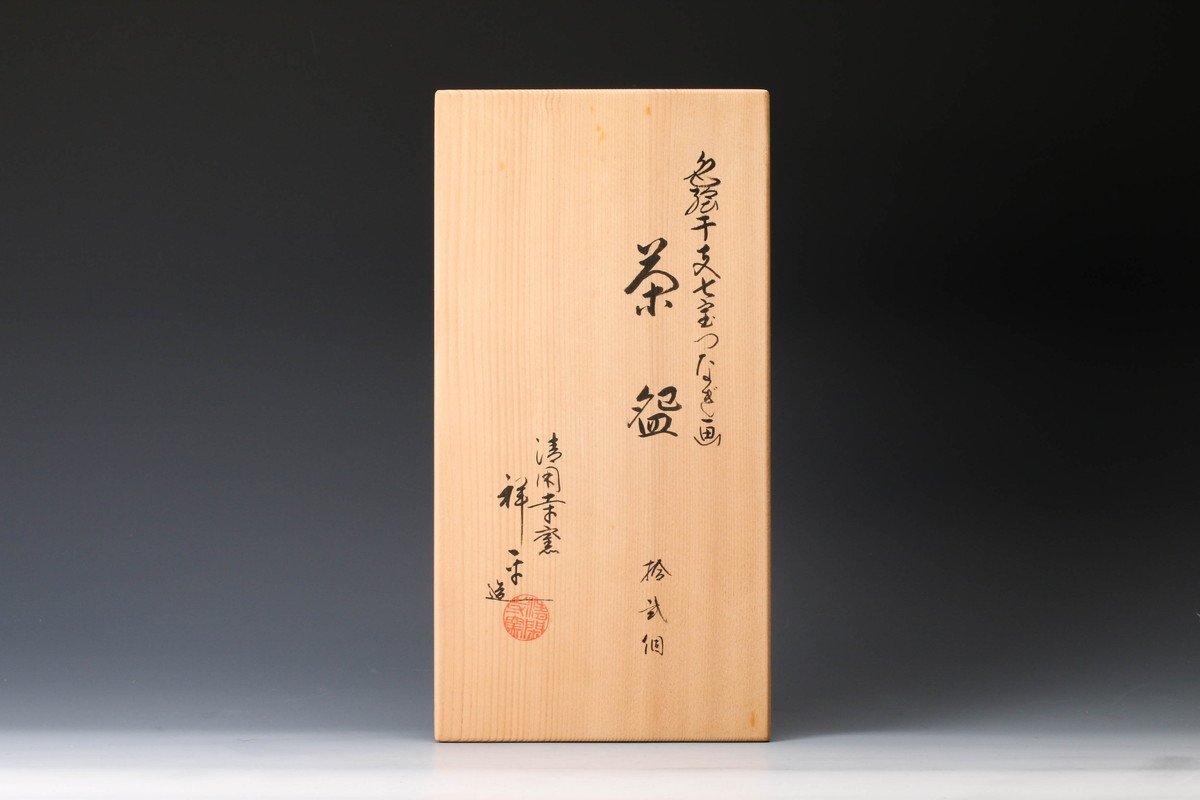 色絵干支七宝つなぎ画
茶盌
拾弐個
清閑寺窯
祥平造